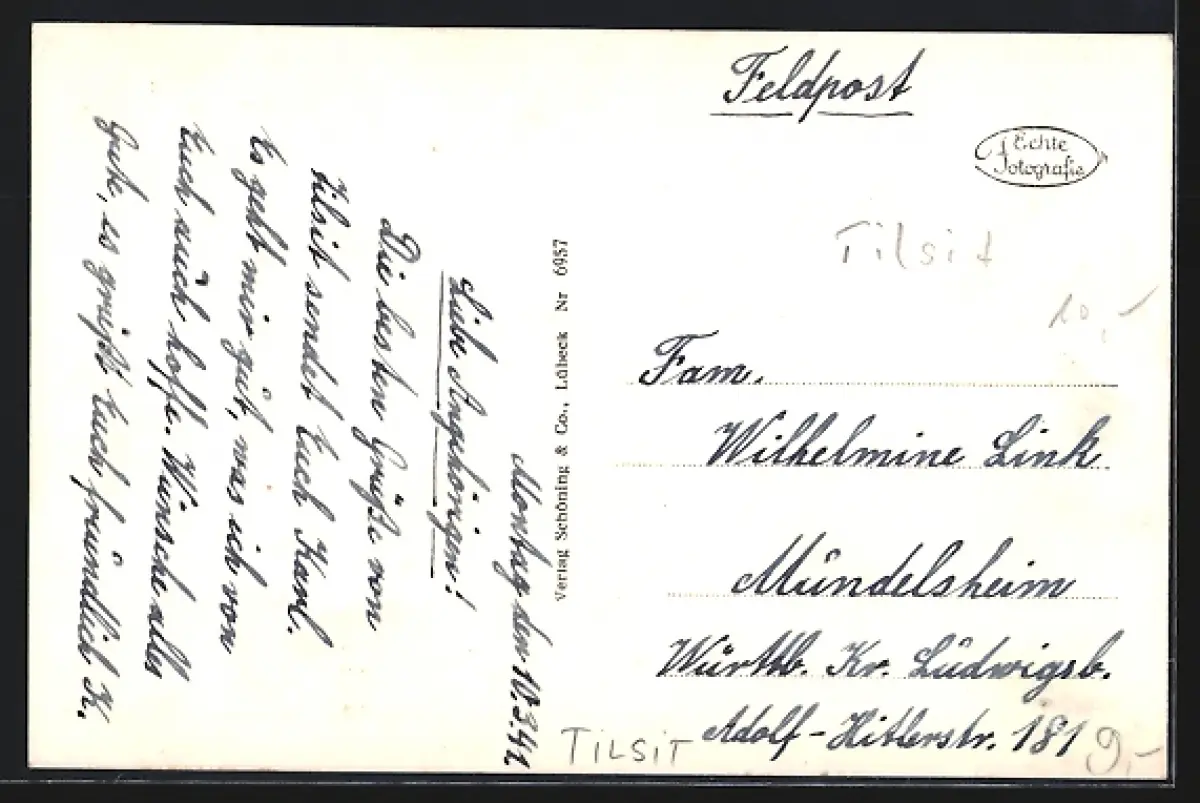 Feldpost
Echte
Fotografie
Tilsit
10,-
Fam.
Wilhelmine Link
Mündelsheim
Württb. Kr. Lüdwigsb.
Adolf-Hitlerstr. 181
9,-
TILSIT
Verlag Schöning & Co., Lübeck Nr 6957
Montag den 10.3.41
Liebe Angehörigen!
Die besten Grüße von
Tilsit sendet Euch Karl.
Es geht mir gut, was ich von
Euch auch hoffe. Wünsche alles
Gute, es grüßt Euch freundlich K.